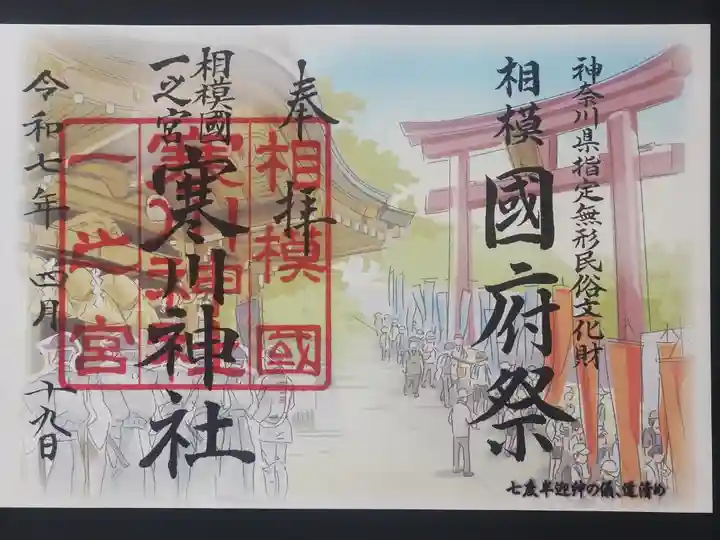 神奈川県指定無形民俗文化財
相模 國府祭
七度半迎神の儀、道清め
奉拝
相模國
一之宮
寒川神社
相模國
寒川神社
一之宮
令和七年 四月 十九日